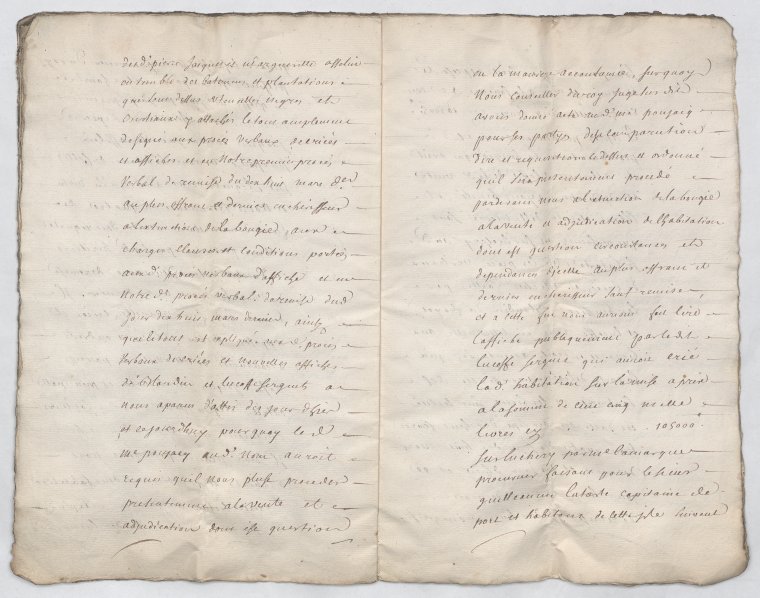 des d. pierre Jacques et Marguerite
ou trouble des batimens et plantations
qui sont dessus utencilles negres et
Bestiaux y attachés le tout amplement
designé aux procès verbaux de criées
et affiches et en notre premier procès
verbal de remise du dix huit mars der.
au plus offrant et dernier encherisseur
a lextinction de la bougie, aux
charges clauses et conditions portés
aux d. procès verbaux d'affiche et en
notre d. procès verbal de remise dud.
jour dix huit mars dernier, ainsy
que le tout est expliqué aux d. procès
verbaux de criées et nouvelles affiches
de et Lucoffe sergents a
nous aparus dattés des jour d'hier
et cejourdhuy pourquoy le d.
me poujacq aud. nom auroit
requis quil nous plust proceder
presentement a la vente et
adjudication dont est question
ou la maniere accoutumée, surquoy
Nous Conseiller du roy juge susdit
avons donné acte aud. me poujacq
pour les partyes de sa comparution
dire et requisition cy dessus et ordonné
quil sera presentement procedé
pardevant nous a lextinction de la bougie
a la vente et adjudication de l'habitation
dont est question circonstances et
dependances d'icelle au plus offrant et
dernier encherisseur sauf remise,
et a cette fin nous aurions fait lire
l'affiche publiquement par led.
Lucoffe sergent qui auroit crié
lad. habitation sur la mise a prix
a la somme de cent cinq mille
livres cy 105000
Surlencherry par me Lamarque
procureur faisant pour le sieur
guillaume Latorte capitaine de
port et habitant de cette isle suivant